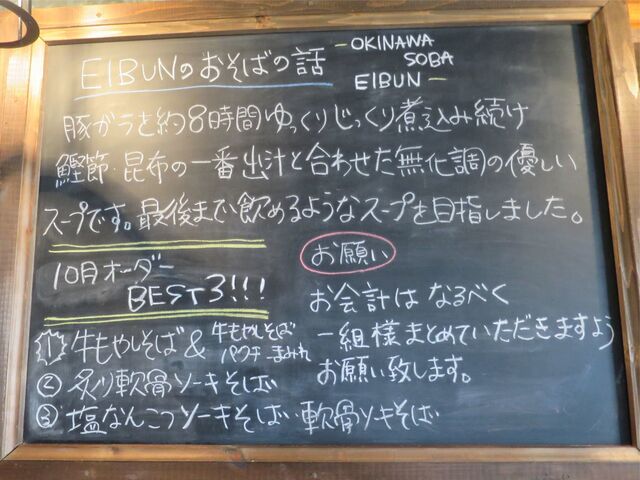 EIBUNのおそばの話
-OKINAWA
SOBA
EIBUN-
豚ガラを約8時間ゆっくりじっくり煮込み続け
鰹節・昆布の一番出汁と合わせた無化調の優しい
スープです。最後まで飲めるようなスープを目指しました。
10月オーダー
BEST3!!!
① 牛もやしそば & 牛もやしそば
パクチーまみれ
② 炙り軟骨ソーキそば
③ 塩なんこつソーキそば・軟骨ソキそば
お願い
お会計は なるべく
一組様まとめていただきますよう
お願い致します。